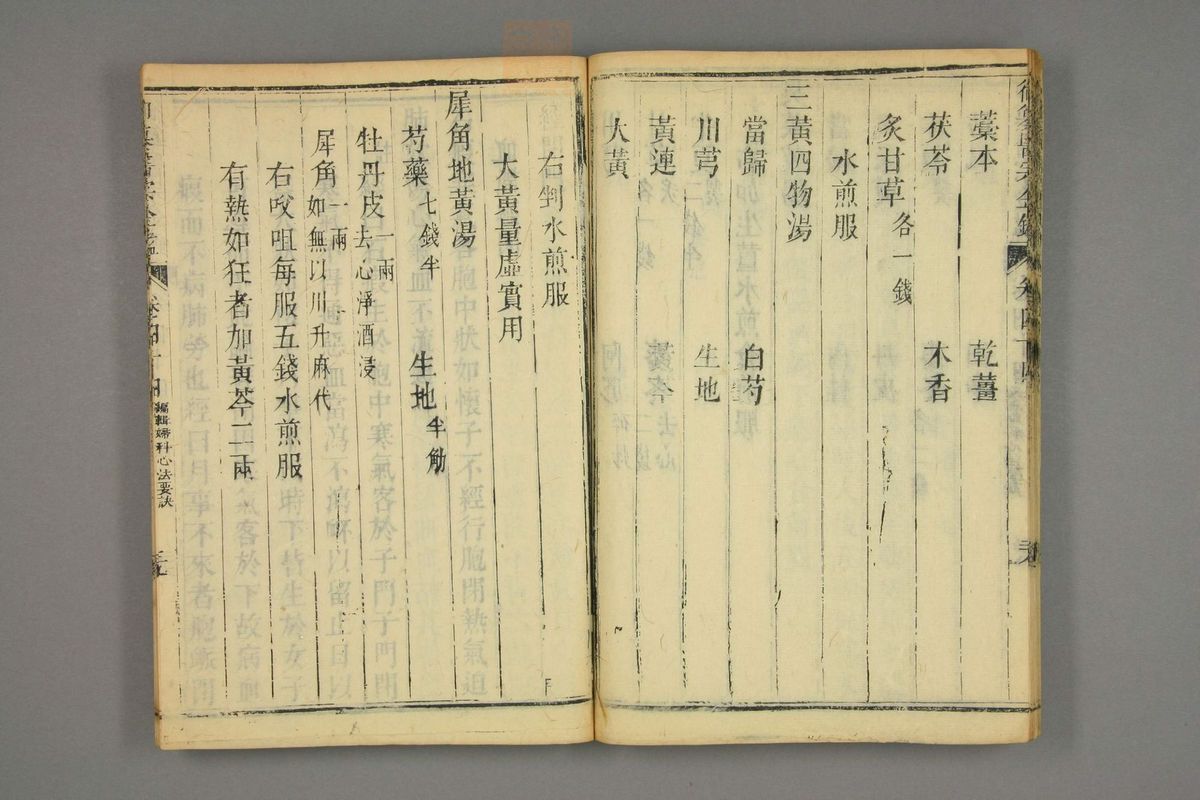 藁本 乾薑
茯苓 木香
炙甘草各一錢
水煎服
三黃四物湯
當歸 白芍
川芎 生地
黃連 黃芩
大黃
右剉水煎服
大黃量虛實用
犀角地黃湯
芍藥七錢半 生地半觔
牡丹皮去心淨酒浸一兩
犀角一兩如無以川升麻代
右㕮咀每服五錢水煎服
有熱如狂者加黃芩二兩
編輯婦科心法要訣